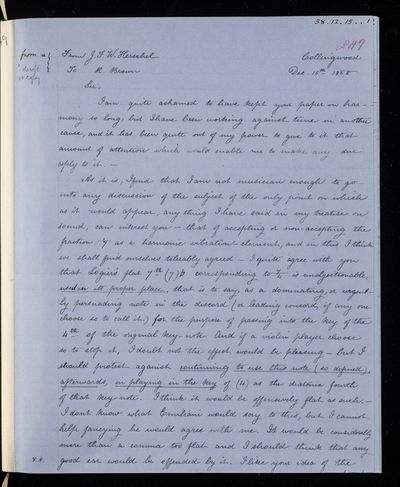 38.12.15..1
9
249
from a
"draft
or copy
From J.F.W. Herschel
Collingwood
To R. Brown
Dec. 15th 1858
Sir,
I am quite ashamed to have kept your paper on har-
mony so long; but I have been working against time in another
cause, and it has been quite out of my power to give to it that
amount of attention which would enable me to make any due
reply to it. —
As it is, I find that I am not musician enough to go
into any discussion of the subject of the only point on which
as it would appear, any thing I have said in my treatise on
sound, can interest you — that of accepting or non-accepting the
fraction as a harmonic vibration element, and in this I think
we shall find ourselves tolerably agreed — I quite agree with you
that Logier's flat 7th (7)b corresponding to is unobjectionable,
used in its proper place, that is to say as a dominating, or urgent-
ly persuading note in the discord (or leading concord, if any one
choose so to call it) for the purpose of passing into the key of the
4th of the original key-note. And if a violin player choose
so to stop it, I doubt not the effect would be pleasing — but I
should protest against continuing to use this note (so defined),
afterwards, in playing in the key of (4) as the diatonic fourth
of that key-note. I think it would be offensively flat as such:—
I dont know what Emiliani would say to this, but I cannot
help fancying he would agree with me. It would be considerably
more than a comma too flat and I should think that any
good ear would be offended by it. I like your idea of the